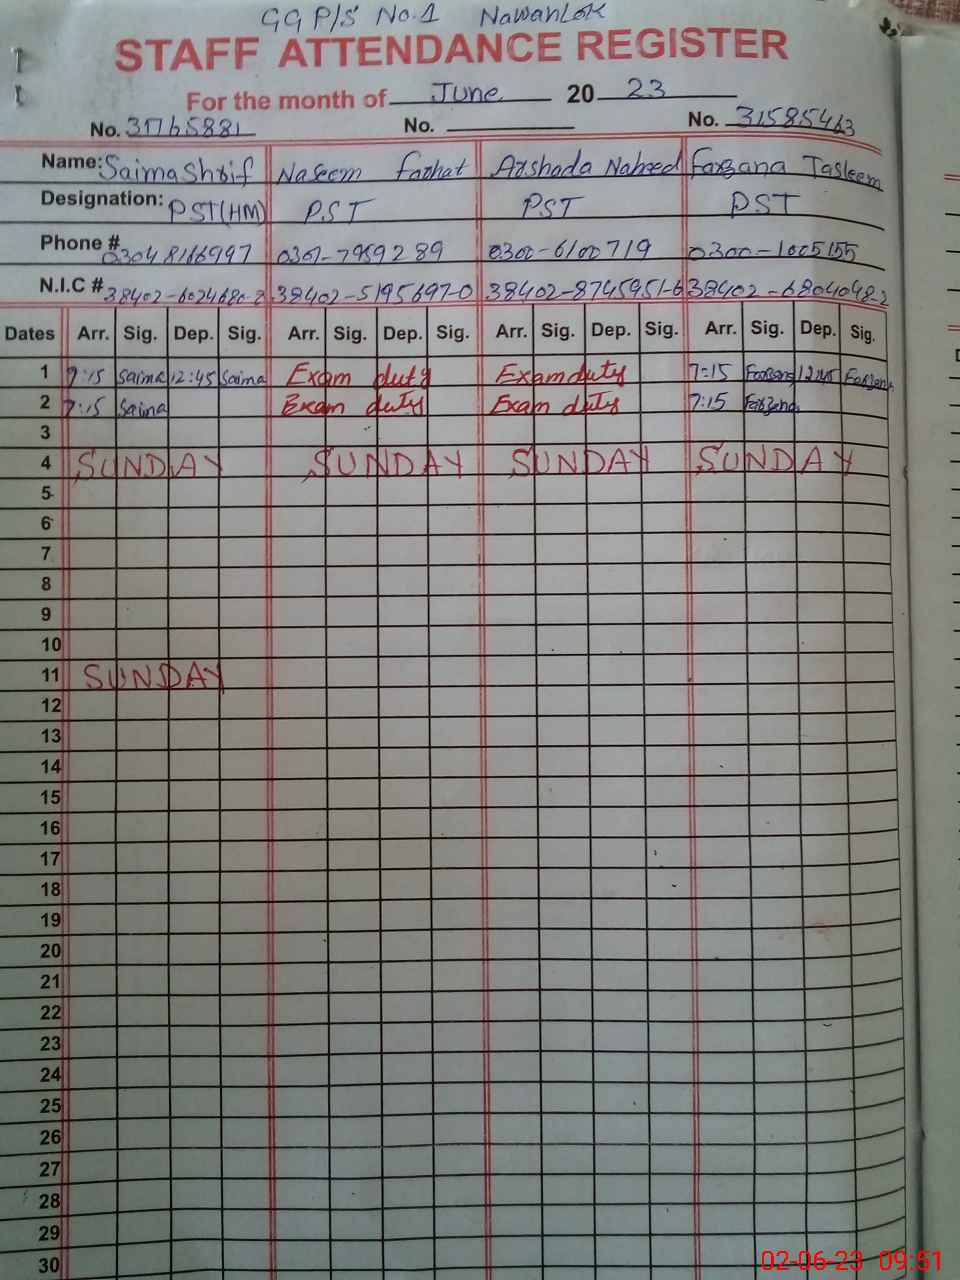 GG P/S No.1 Nawanlok
STAFF ATTENDANCE REGISTER
For the month of June 20 23
No. 31765881 No. No. 31585463
Name: Saima Shrif Naseem Farhat Arshada Naheed Farzana Tasleem
Designation: PST(HM) PST PST PST
Phone # 0304 8166997 0301-7959289 0300-6100719 0300-1005155
N.I.C # 38402-6024680-8 38402-5195697-0 38402-8745951-6 38402-6804048-2
Dates Arr. Sig. Dep. Sig. Arr. Sig. Dep. Sig. Arr. Sig. Dep. Sig. Arr. Sig. Dep. Sig.
1 7:15 Saima 12:45 Saima Exam duty Exam duty 7:15 Farzana 12:45 Farzana
2 7:15 Saima Exam duty Exam duty 7:15 Farzana
3
4 SUNDAY SUNDAY SUNDAY SUNDAY
5
6
7
8
9
10
11 SUNDAY
12
13
14
15
16
17
18
19
20
21
22
23
24
25
26
27
28
29
30
02-06-23 09:51